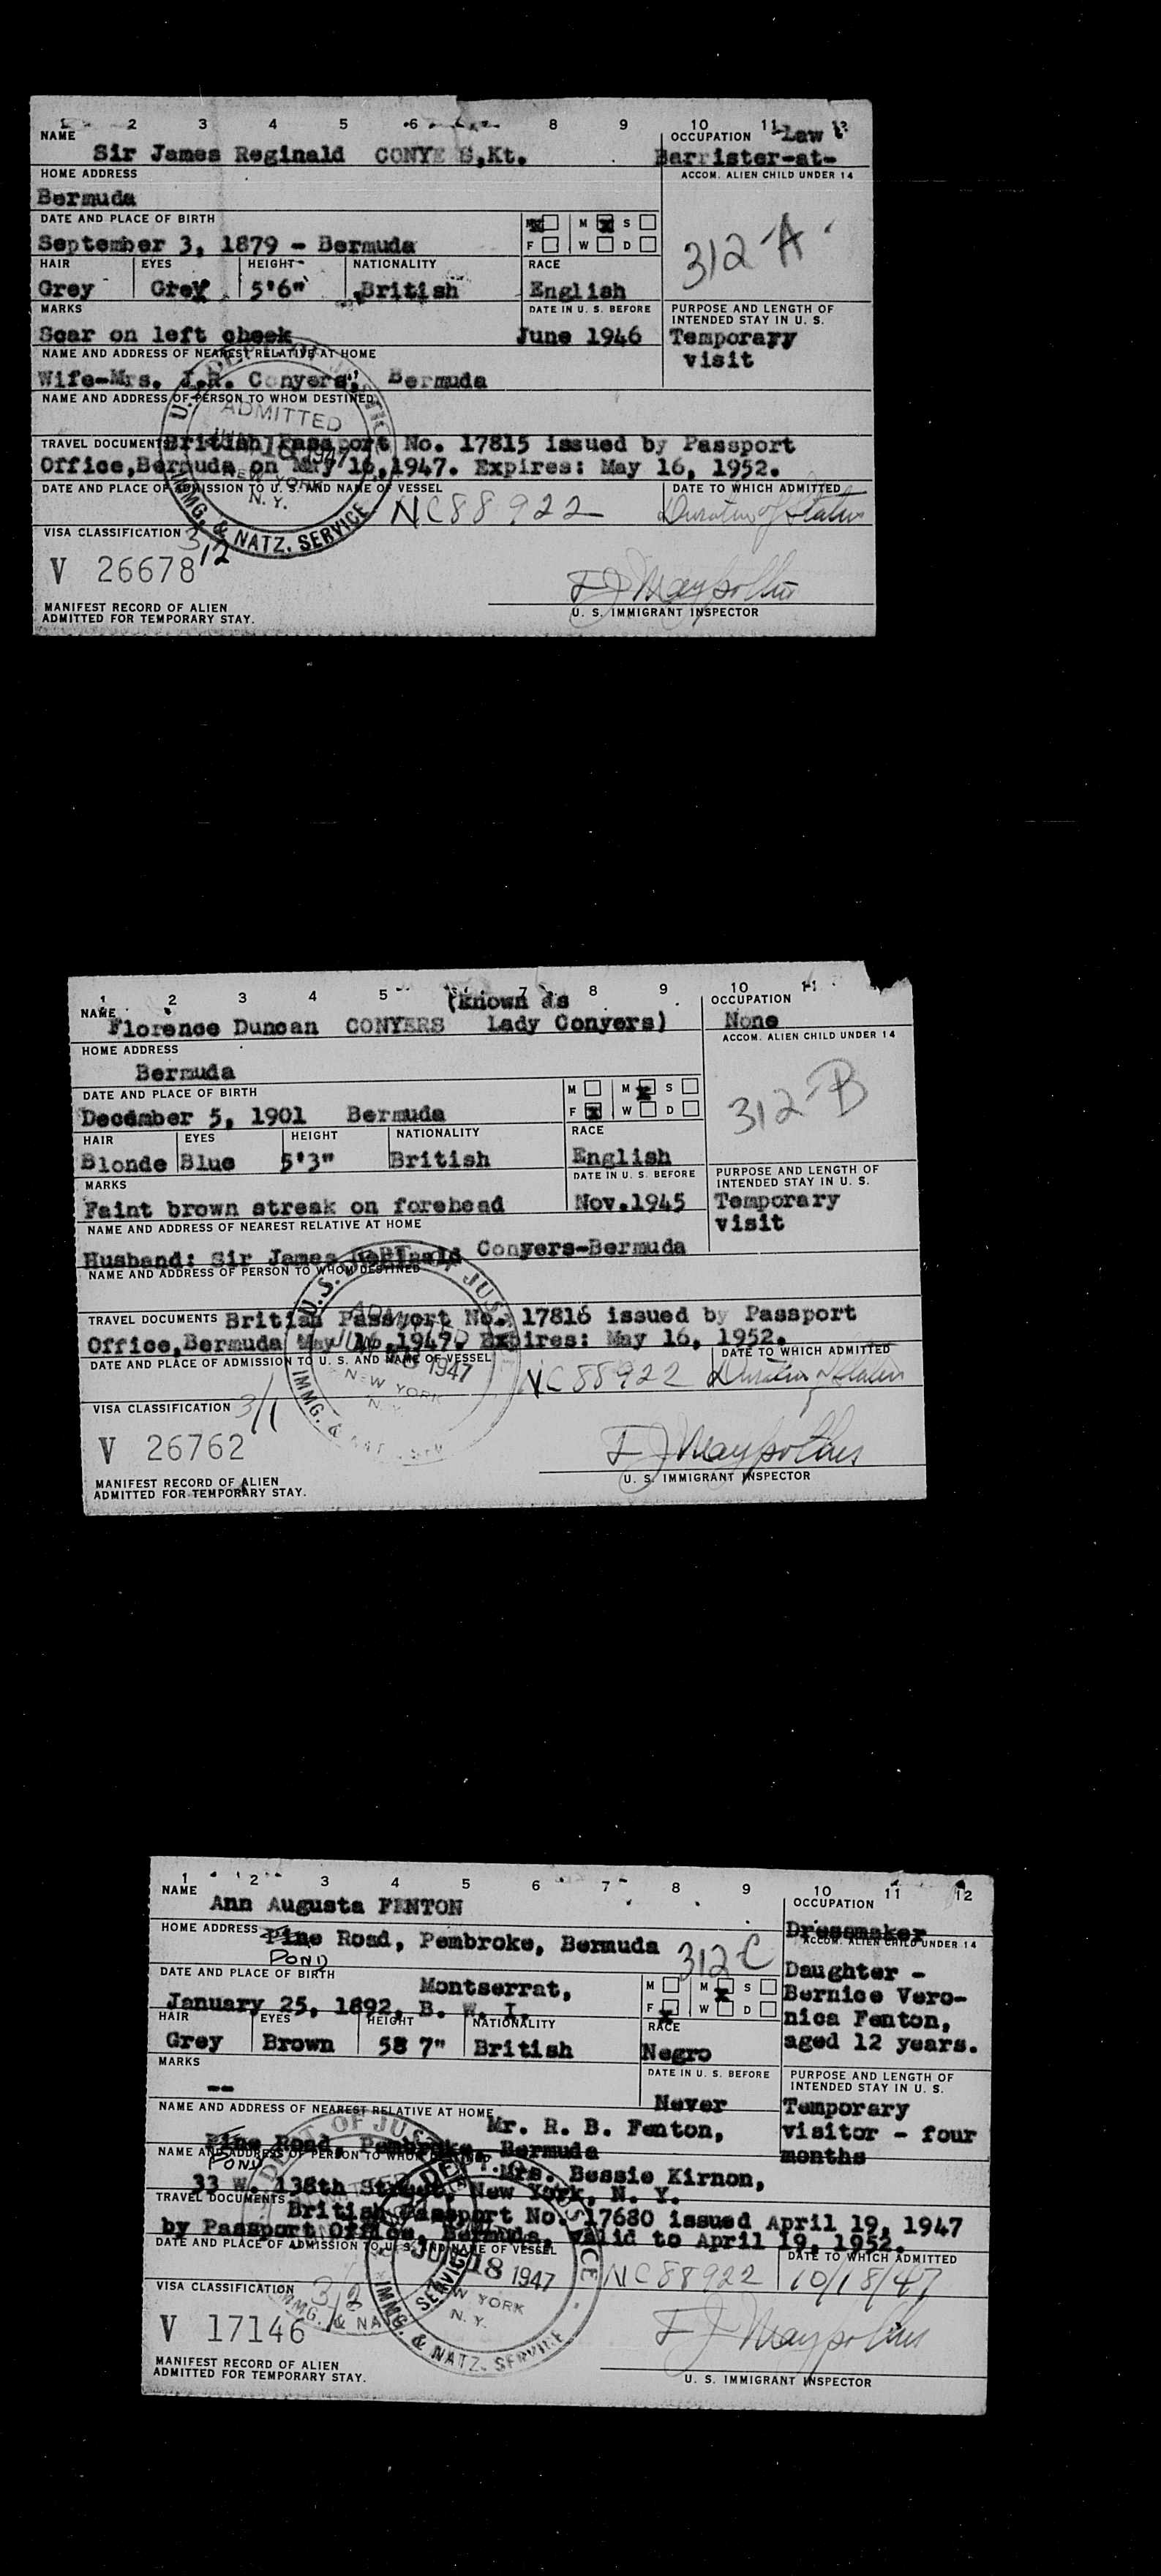 1 2 3 4 5 6 8 9 10 11
NAME OCCUPATION Law
Sir James Reginald CONYE S,Kt. Barrister-at-
HOME ADDRESS ACCOM. ALIEN CHILD UNDER 14
Bermuda
DATE AND PLACE OF BIRTH M M S
September 3, 1879 - Bermuda F W D
312-A
HAIR EYES HEIGHT NATIONALITY RACE
Grey Grey 5'6" British English
MARKS DATE IN U. S. BEFORE PURPOSE AND LENGTH OF
INTENDED STAY IN U. S.
Scar on left cheek June 1946 Temporary
visit
NAME AND ADDRESS OF NEAREST RELATIVE AT HOME
Wife-Mrs. J.R. Conyers, Bermuda
NAME AND ADDRESS OF PERSON TO WHOM DESTINED
ADMITTED
TRAVEL DOCUMENTS British Passport No. 17815 issued by Passport
Office,Bermuda on May 16,1947. Expires: May 16, 1952.
DATE AND PLACE OF ADMISSION TO U. S. AND NAME OF VESSEL DATE TO WHICH ADMITTED
1947
NEW YORK
N. Y.
IMMG. & NATZ. SERVICE
NC88922 Duration of Status
VISA CLASSIFICATION 3/2
V 26678
F J Maypothis
MANIFEST RECORD OF ALIEN U. S. IMMIGRANT INSPECTOR
ADMITTED FOR TEMPORARY STAY.
1 2 3 4 5 7 8 9 10 11
NAME (known as OCCUPATION
Florence Duncan CONYERS Lady Conyers) None
HOME ADDRESS ACCOM. ALIEN CHILD UNDER 14
Bermuda
DATE AND PLACE OF BIRTH M M S
December 5, 1901 Bermuda F W D
312-B
HAIR EYES HEIGHT NATIONALITY RACE
Blonde Blue 5'3" British English
MARKS DATE IN U. S. BEFORE PURPOSE AND LENGTH OF
INTENDED STAY IN U. S.
Faint brown streak on forehead Nov.1945 Temporary
visit
NAME AND ADDRESS OF NEAREST RELATIVE AT HOME
Husband: Sir James Reginald Conyers-Bermuda
NAME AND ADDRESS OF PERSON TO WHOM DESTINED
TRAVEL DOCUMENTS British Passport No. 17816 issued by Passport
Office,Bermuda May 16,1947. Expires: May 16, 1952.
DATE AND PLACE OF ADMISSION TO U. S. AND NAME OF VESSEL DATE TO WHICH ADMITTED
1947
NEW YORK
NC88922 Duration of Status
VISA CLASSIFICATION 3/1
V 26762
F J Maypothis
MANIFEST RECORD OF ALIEN U. S. IMMIGRANT INSPECTOR
ADMITTED FOR TEMPORARY STAY.
1 2 3 4 5 6 7 8 9 10 11 12
NAME OCCUPATION
Ann Augusta FENTON Dressmaker
HOME ADDRESS Pine Road, Pembroke, Bermuda 312 C ACCOM. ALIEN CHILD UNDER 14
POND
DATE AND PLACE OF BIRTH M M S Daughter -
Montserrat, Bernice Vero-
January 25, 1892, B. W. I. F W D nica Fenton,
HAIR EYES HEIGHT NATIONALITY RACE aged 12 years.
Grey Brown 58 7" British Negro
MARKS DATE IN U. S. BEFORE PURPOSE AND LENGTH OF
INTENDED STAY IN U. S.
-- Never Temporary
NAME AND ADDRESS OF NEAREST RELATIVE AT HOME Mr. R. B. Fenton, visitor - four
Pine Road, Pembroke, Bermuda months
POND
NAME AND ADDRESS OF PERSON TO WHOM Mrs. Bessie Kirnon,
33 W. 138th Street, New York, N. Y.
TRAVEL DOCUMENTS British Passport No. 17680 issued April 19, 1947
by Passport Office, Bermuda, valid to April 19, 1952.
DATE AND PLACE OF ADMISSION TO U. S. AND NAME OF VESSEL DATE TO WHICH ADMITTED
JUN 18 1947
NEW YORK
N. Y.
IMMG. & NATZ. SERVICE
NC88922 10/18/47
VISA CLASSIFICATION 3/2
V 17146
F J Maypothis
MANIFEST RECORD OF ALIEN U. S. IMMIGRANT INSPECTOR
ADMITTED FOR TEMPORARY STAY.